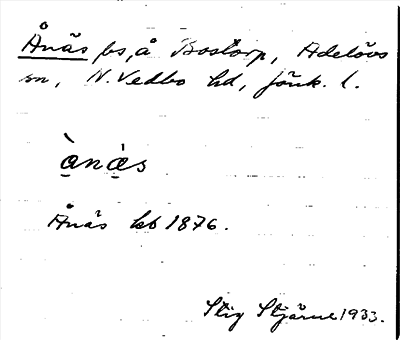 Ånäs bs, å Bostorp, Adelövs
sn, N. Vedbo hd, Jönk. l.
ànæ̀s
Ånäs kb 1876.
Stig Stjärne 1933.